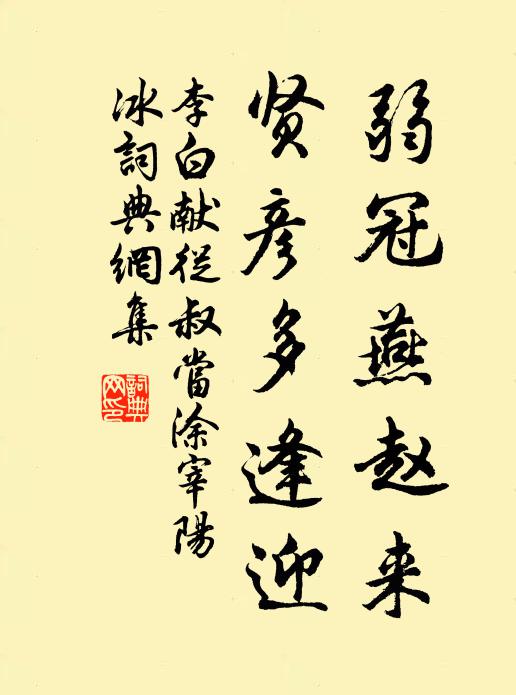 弱冠燕赵来
贤彦多逢迎
李白献從叔當涂宰陽
冰詞典網集
詞典
网印